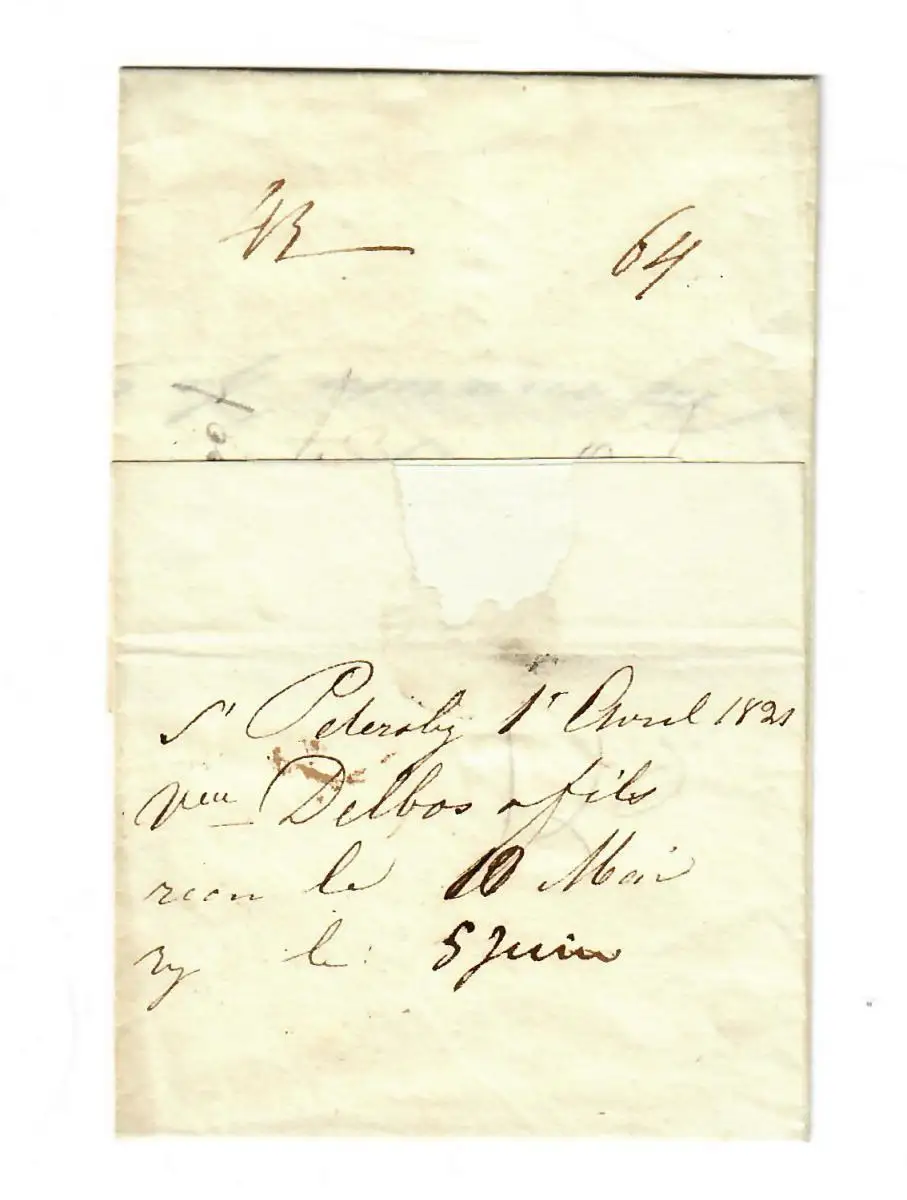 43 64
St Petersbg 1r Avril 1821
Veuve Delbos & fils
recu le 10 Mai
le: 5 Juin